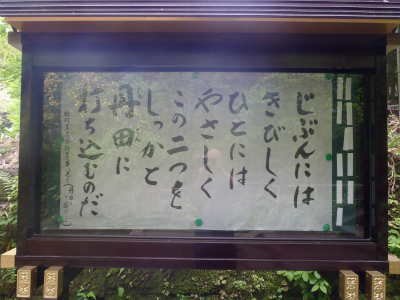 じぶんには
きびしく
ひとには
やさしく
この二つを
しっかと
丹田に
打ち込むのだ